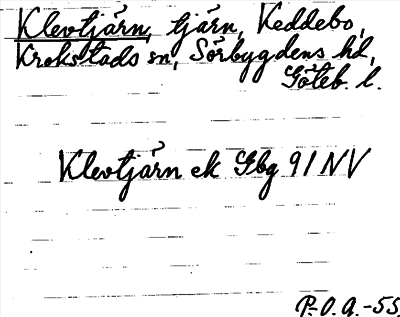 Klevtjärn, tjärn, Keddebo,
Krokstads sn, Sörbygdens hd,
Göteb. l.
Klevtjärn ek Gbg 91 NV
P.-O.A.-55.